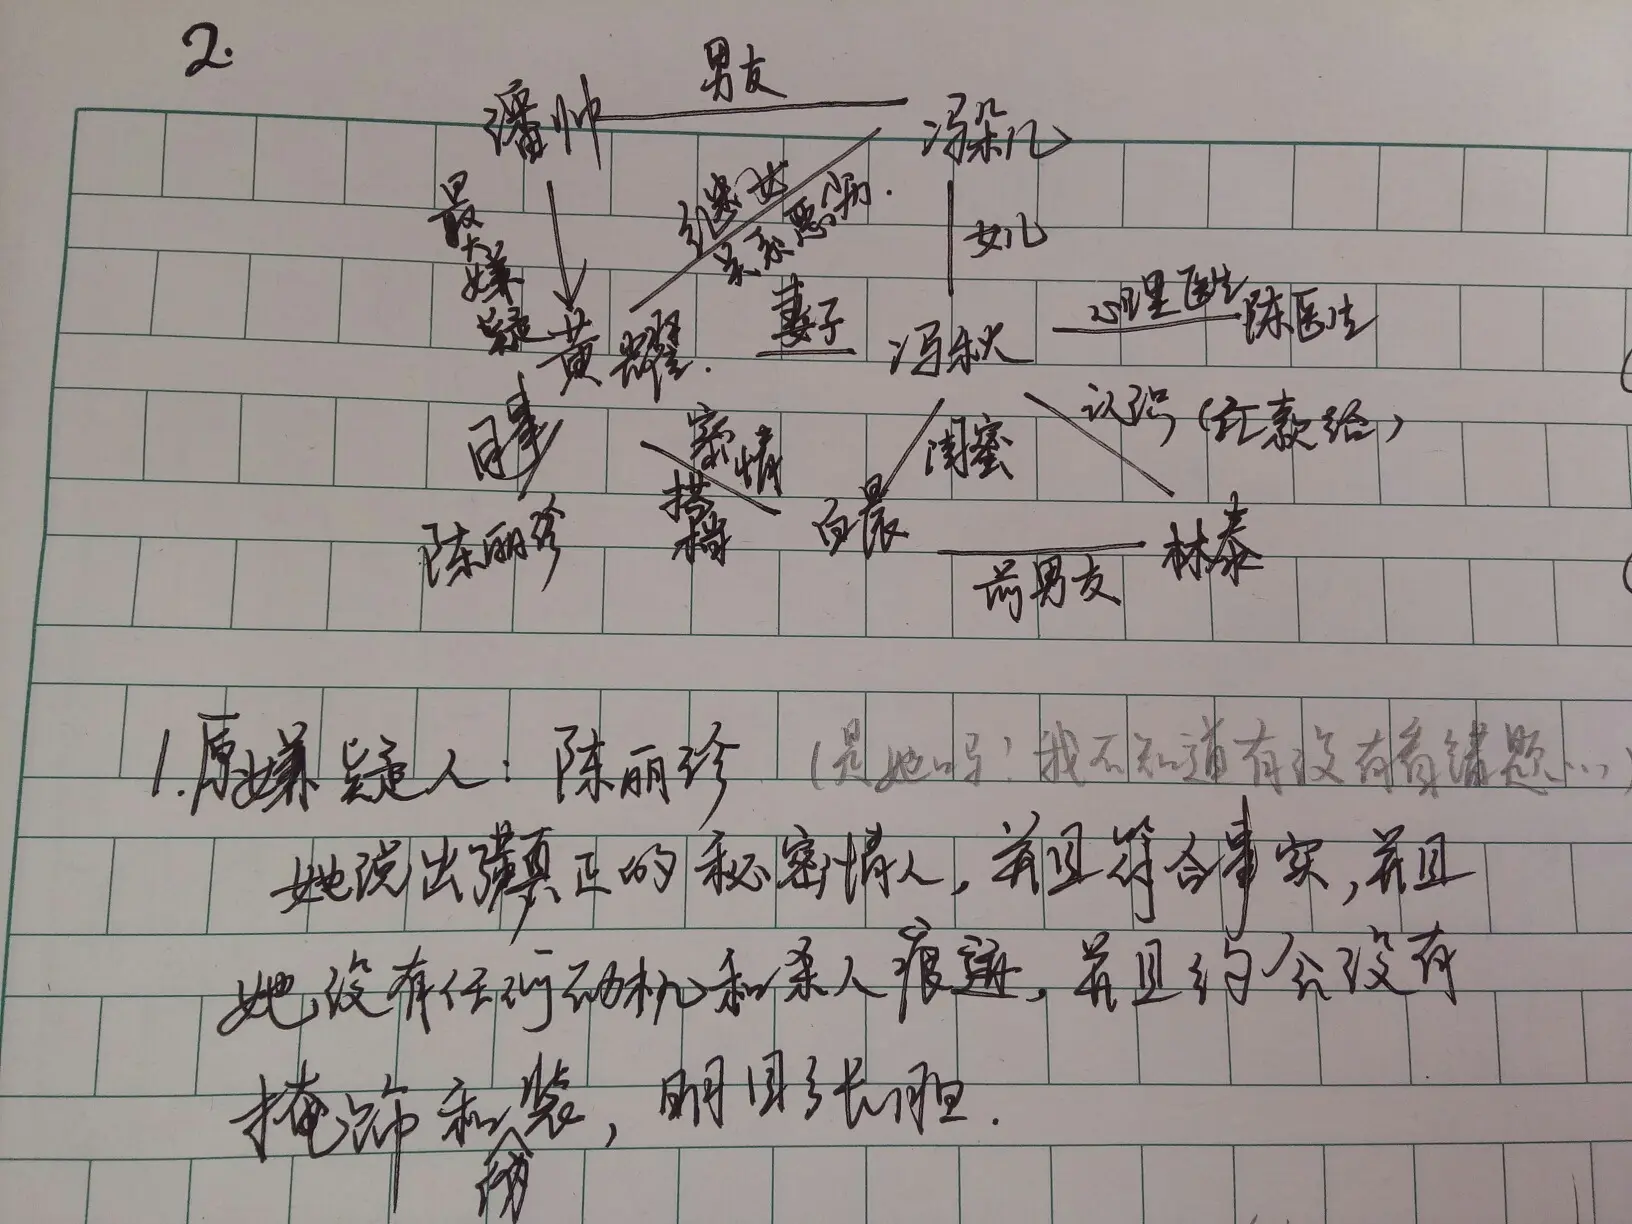 2.
男友
潘帅
冯朵儿
最大嫌疑
继女
关系恶劣.
女儿
妻子
心理医生
陈医生
黄耀.
冯秋
同事
密情
搭档
闺蜜
认识(汇款给)
陈丽珍
白晨
林泰
前男友
1.原嫌疑人:陈丽珍 (是她吗?我不知道有没有看错题...)
她说出真正的秘密情人,并且符合事实,并且
她没有任何动机和杀人痕迹,并且约会没有
掩饰和伪装,明目张胆.